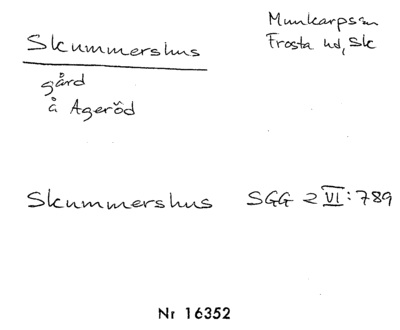 Skummershus
Munkarps sn
Frosta hd, Sk
gård
å Ageröd
Skummershus SGG 2 VI: 789
Nr 16352